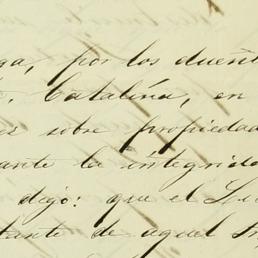 ga, por los dueñ
Catalina, en
es sobre propiedad
ante la integrida
dejo: que el
tante de aquel